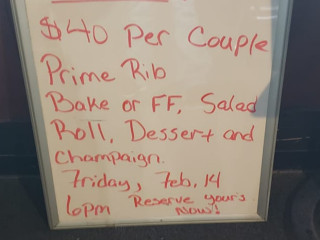 $40 Per Couple
Prime Rib
Bake or FF, Salad
Roll, Dessert and
Champaign.
Friday, Feb. 14
6pm Reserve yours
Now!